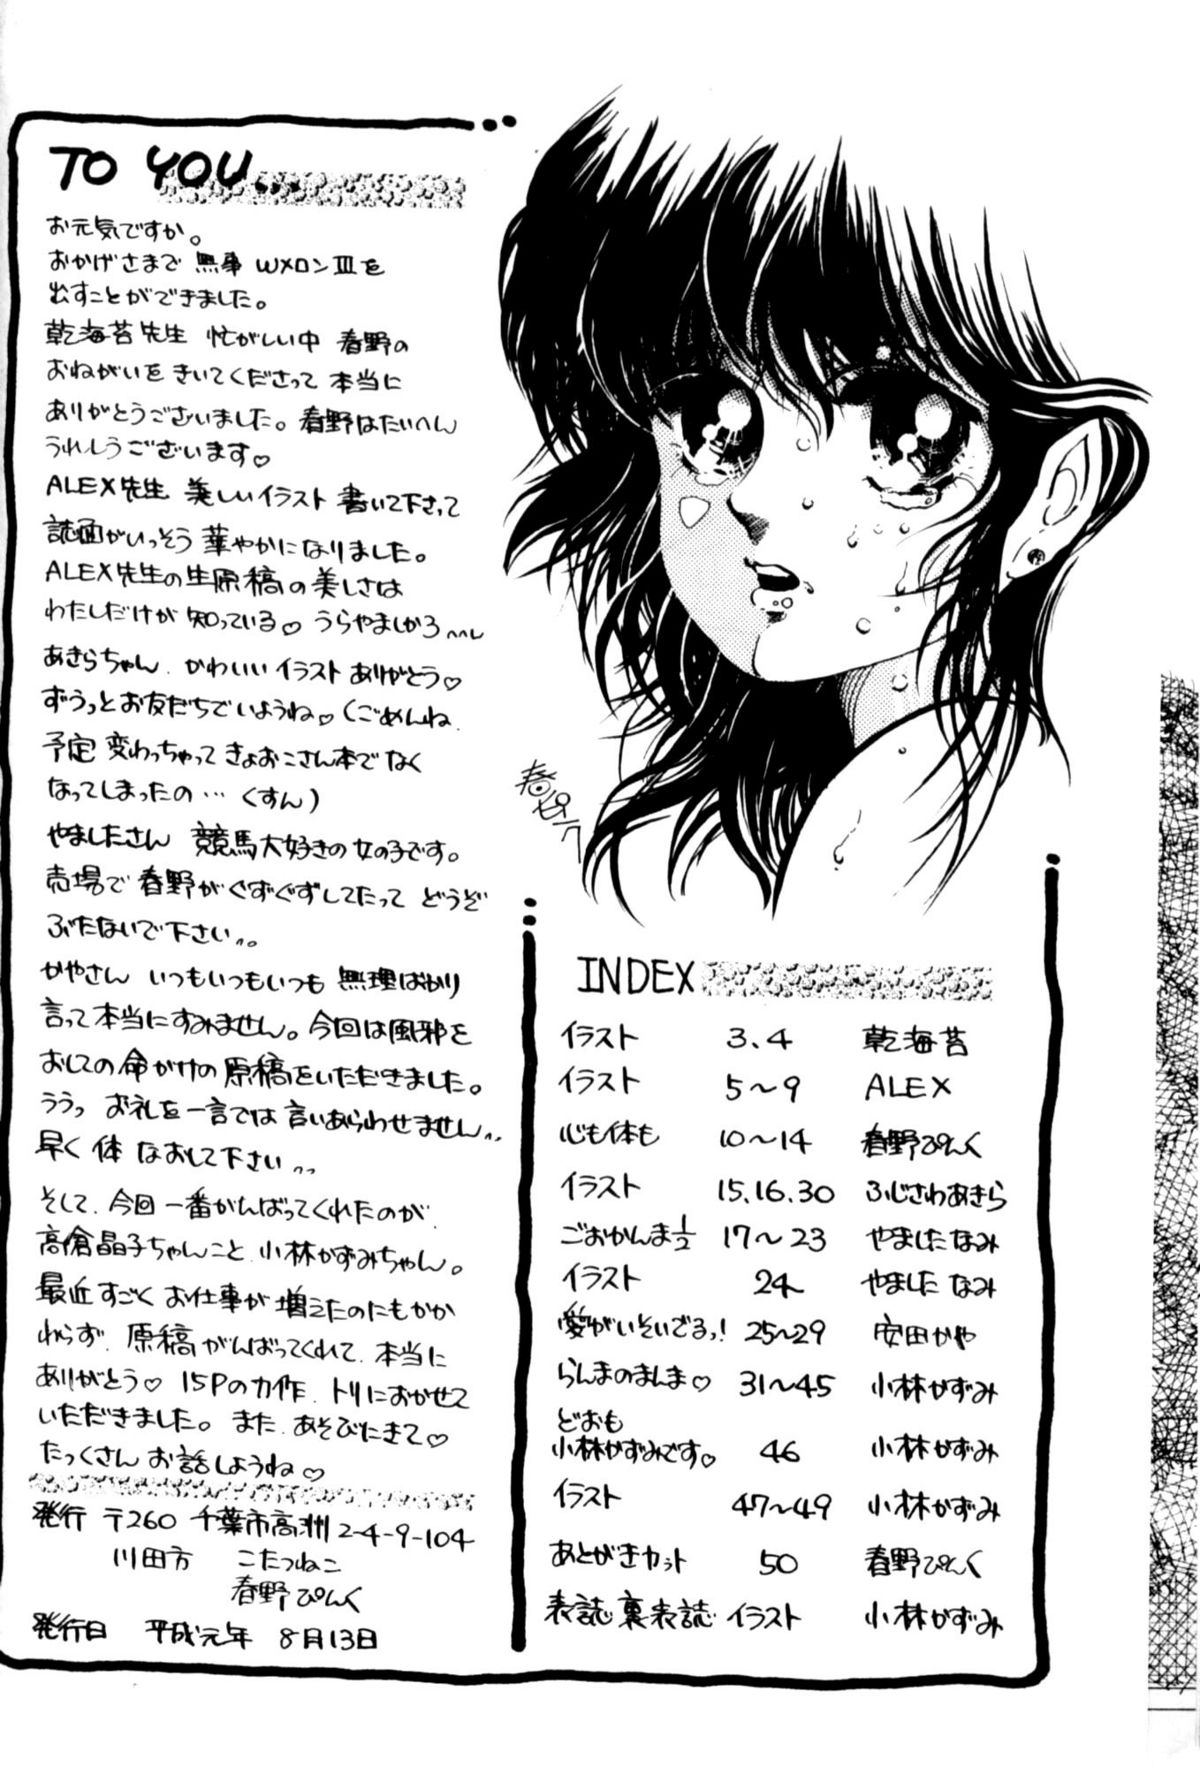 TO YOU...
お元気ですか。
おかげさまで 無事 WメロンⅢを
出すことができました。
乾海苔先生 忙がしい中 春野の
おねがいを きいてくださって 本当に
ありがとうございました。春野はたいへん
うれしうございます♡
ALEX先生 美しいイラスト 書いて下さって
誌面がいっそう 華やかになりました。
ALEX先生の生原稿の美しさは
わたしだけが 知っている♡ うらやましかろ〜し
あきらちゃん. かわいい イラスト ありがとう♡
ずうっとお友だちでいようね♡ (ごめんね.
予定 変わっちゃって きょおこさん本でなく
なってしまったの… くすん)
やましたさん 競馬大好きの女の子です。
売場で 春野がぐずぐずしてたって どうぞ
ぶたないで下さい
かやさん いつもいつもいつも 無理ばかり
言って本当にすみません。今回は風邪を
おしての命がけの原稿をいただきました。
ううっ お礼を一言では 言いあらわせません
早く 体 なおして下さい
そして. 今回 一番がんばってくれたのが.
高倉晶子ちゃんこと. 小林かずみちゃん。
最近 すごく お仕事が 増えたのにもかか
わらず. 原稿がんばってくれて. 本当に
ありがとう♡ 15Pの力作. トリにおかせて
いただきました。また. あそびにきて♡
たっくさん お話しようね♡
発行 〒260 千葉市高洲2-4-9-104
川田方 こたつねこ
春野ぴんく
発行日 平成元年 8月13日
INDEX
イラスト 3.4 乾海苔
イラスト 5〜9 ALEX
心も体も 10〜14 春野ぴんく
イラスト 15.16.30 ふじさわあきら
ごおかんま½ 17〜23 やましたなみ
イラスト 24 やました なみ
愛がいそいでるっ! 25〜29 安田かや
らんまのまんま♡ 31〜45 小林かずみ
どおも
小林かずみです♡ 46 小林かずみ
イラスト 47〜49 小林かずみ
あとがきカット 50 春野ぴんく
表誌 裏表誌 イラスト 小林かずみ